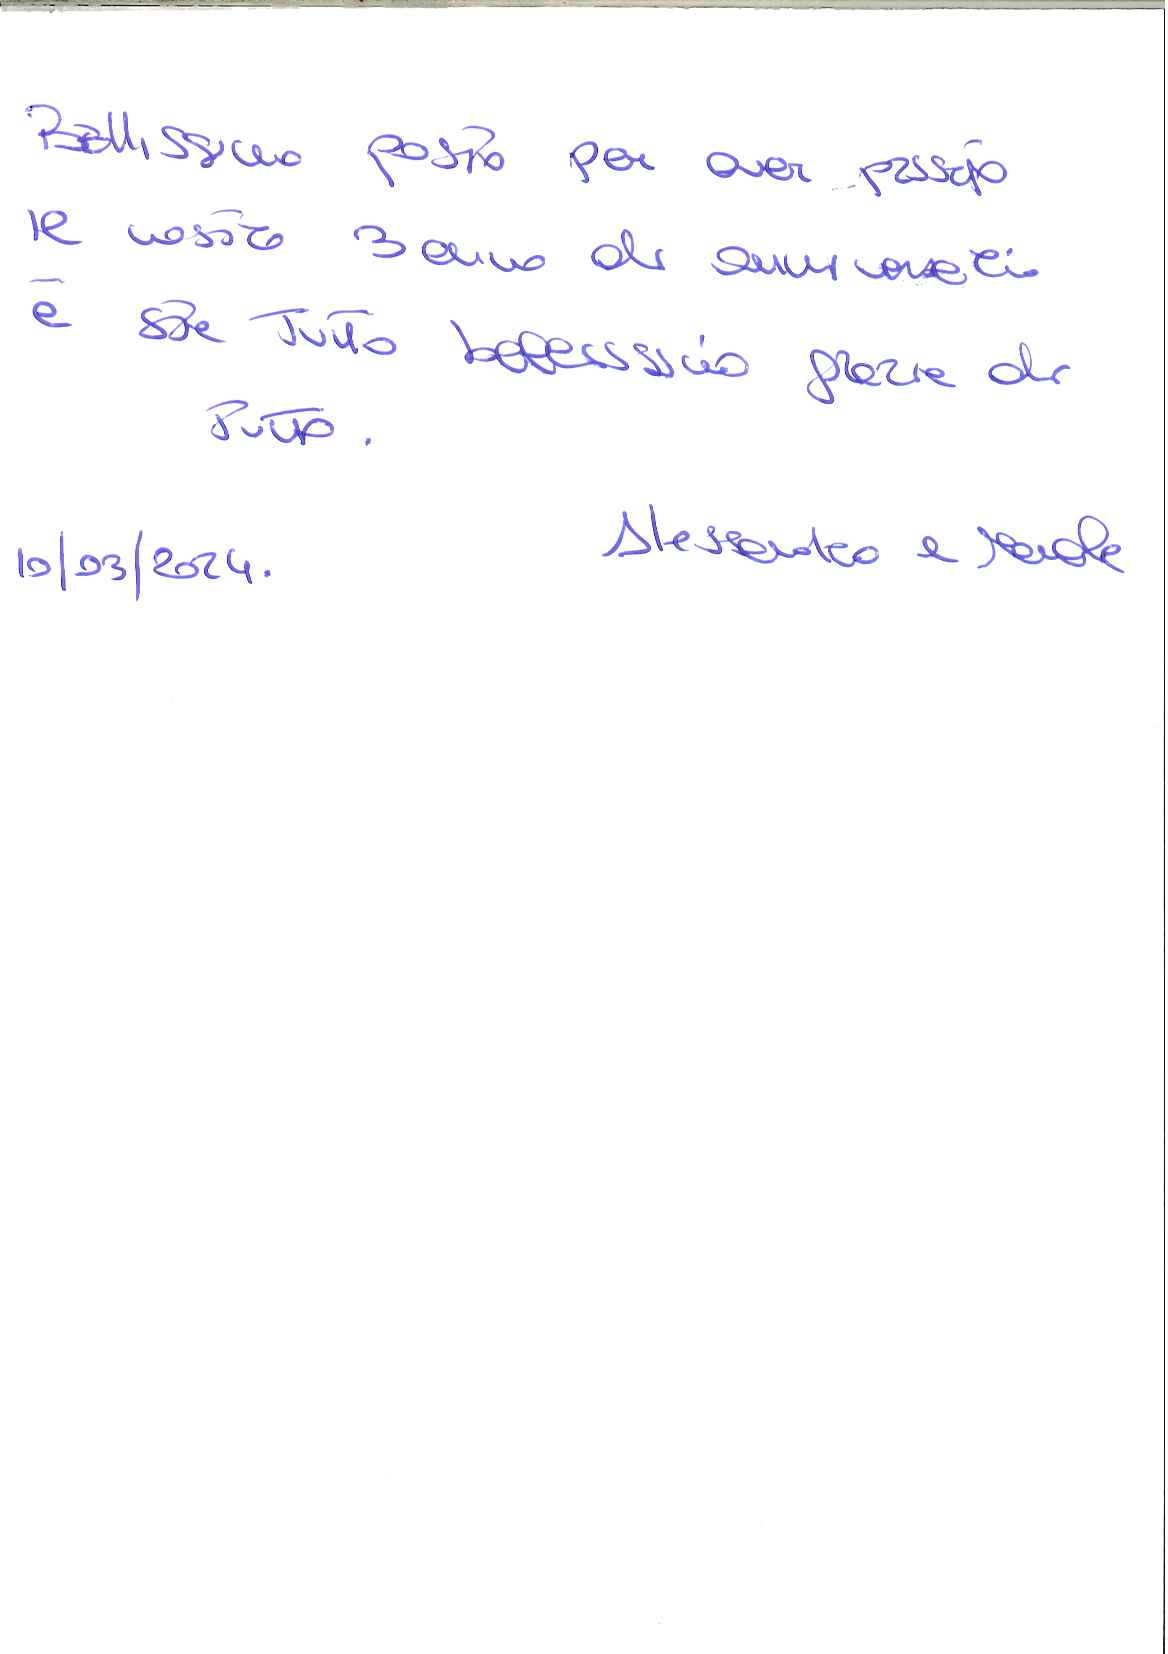 Bellissimo posto per aver passato
il nostro 3 anno di anniversario
e stte tutto bellesssimo grazie di
Tutto.
10/03/2024. Alessandro e